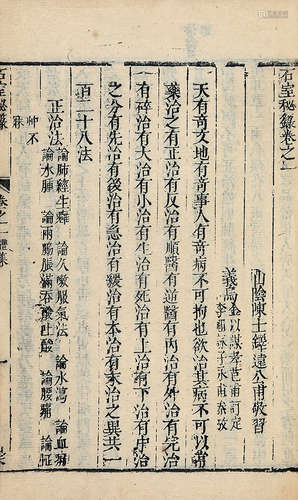 石室秘錄卷之一
山陰陳士鐸遠公甫敬習
義烏金以謀孝芑甫訂定
李祖詠子永甫參較
天有奇文地有奇事人有奇病不可拘也欲治其病不可以常
藥治之有正治有反治有順醫有逆醫有內治有外治有完治
有碎治有大治有小治有生治有死治有上治有下治有中治
之分有先治有後治有急治有緩治有本治有末治之異共一
百二十八法
正治法 論肺經生癰 論久嗽服氣法 論水瀉 論血痢
論水腫 論兩脇脹滿吞酸吐酸 論腰痛 論怔
忡不
寐
石室秘錄
卷之一